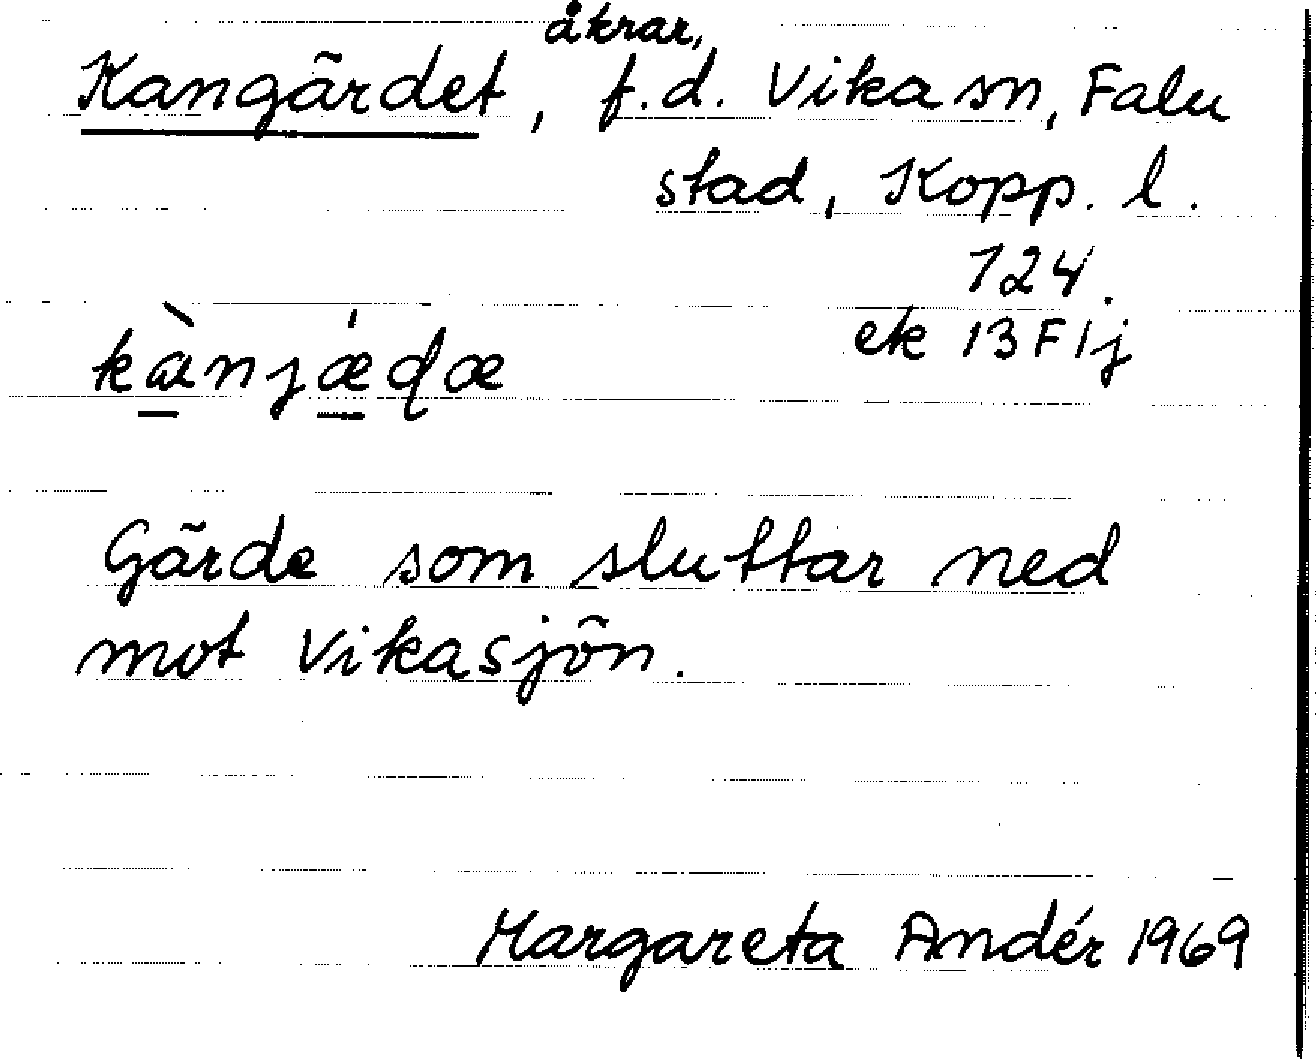 åkrar,
Kangärdet, f.d. Vika sn, Falu
stad, Kopp. l.
124.
ek 13 F 1j
kànjǽɖæ
Gärde som sluttar ned
mot Vikasjön.
Margareta Andér 1969